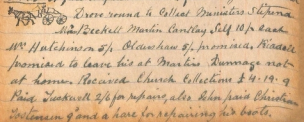 Drove round to Collect Ministers Stipend
Beckell Martin Cantlay Self 10/- each
Mr Hutchinson 5/- Oldershaw 5/- promised, Riddell
promised to leave his at Martins. Dunnage not
at home. Received Church Collections £4.19.9
Paid Tuskwell 2/6 for repairs, also John paid Christian
9 and a hare for repairing his boots.